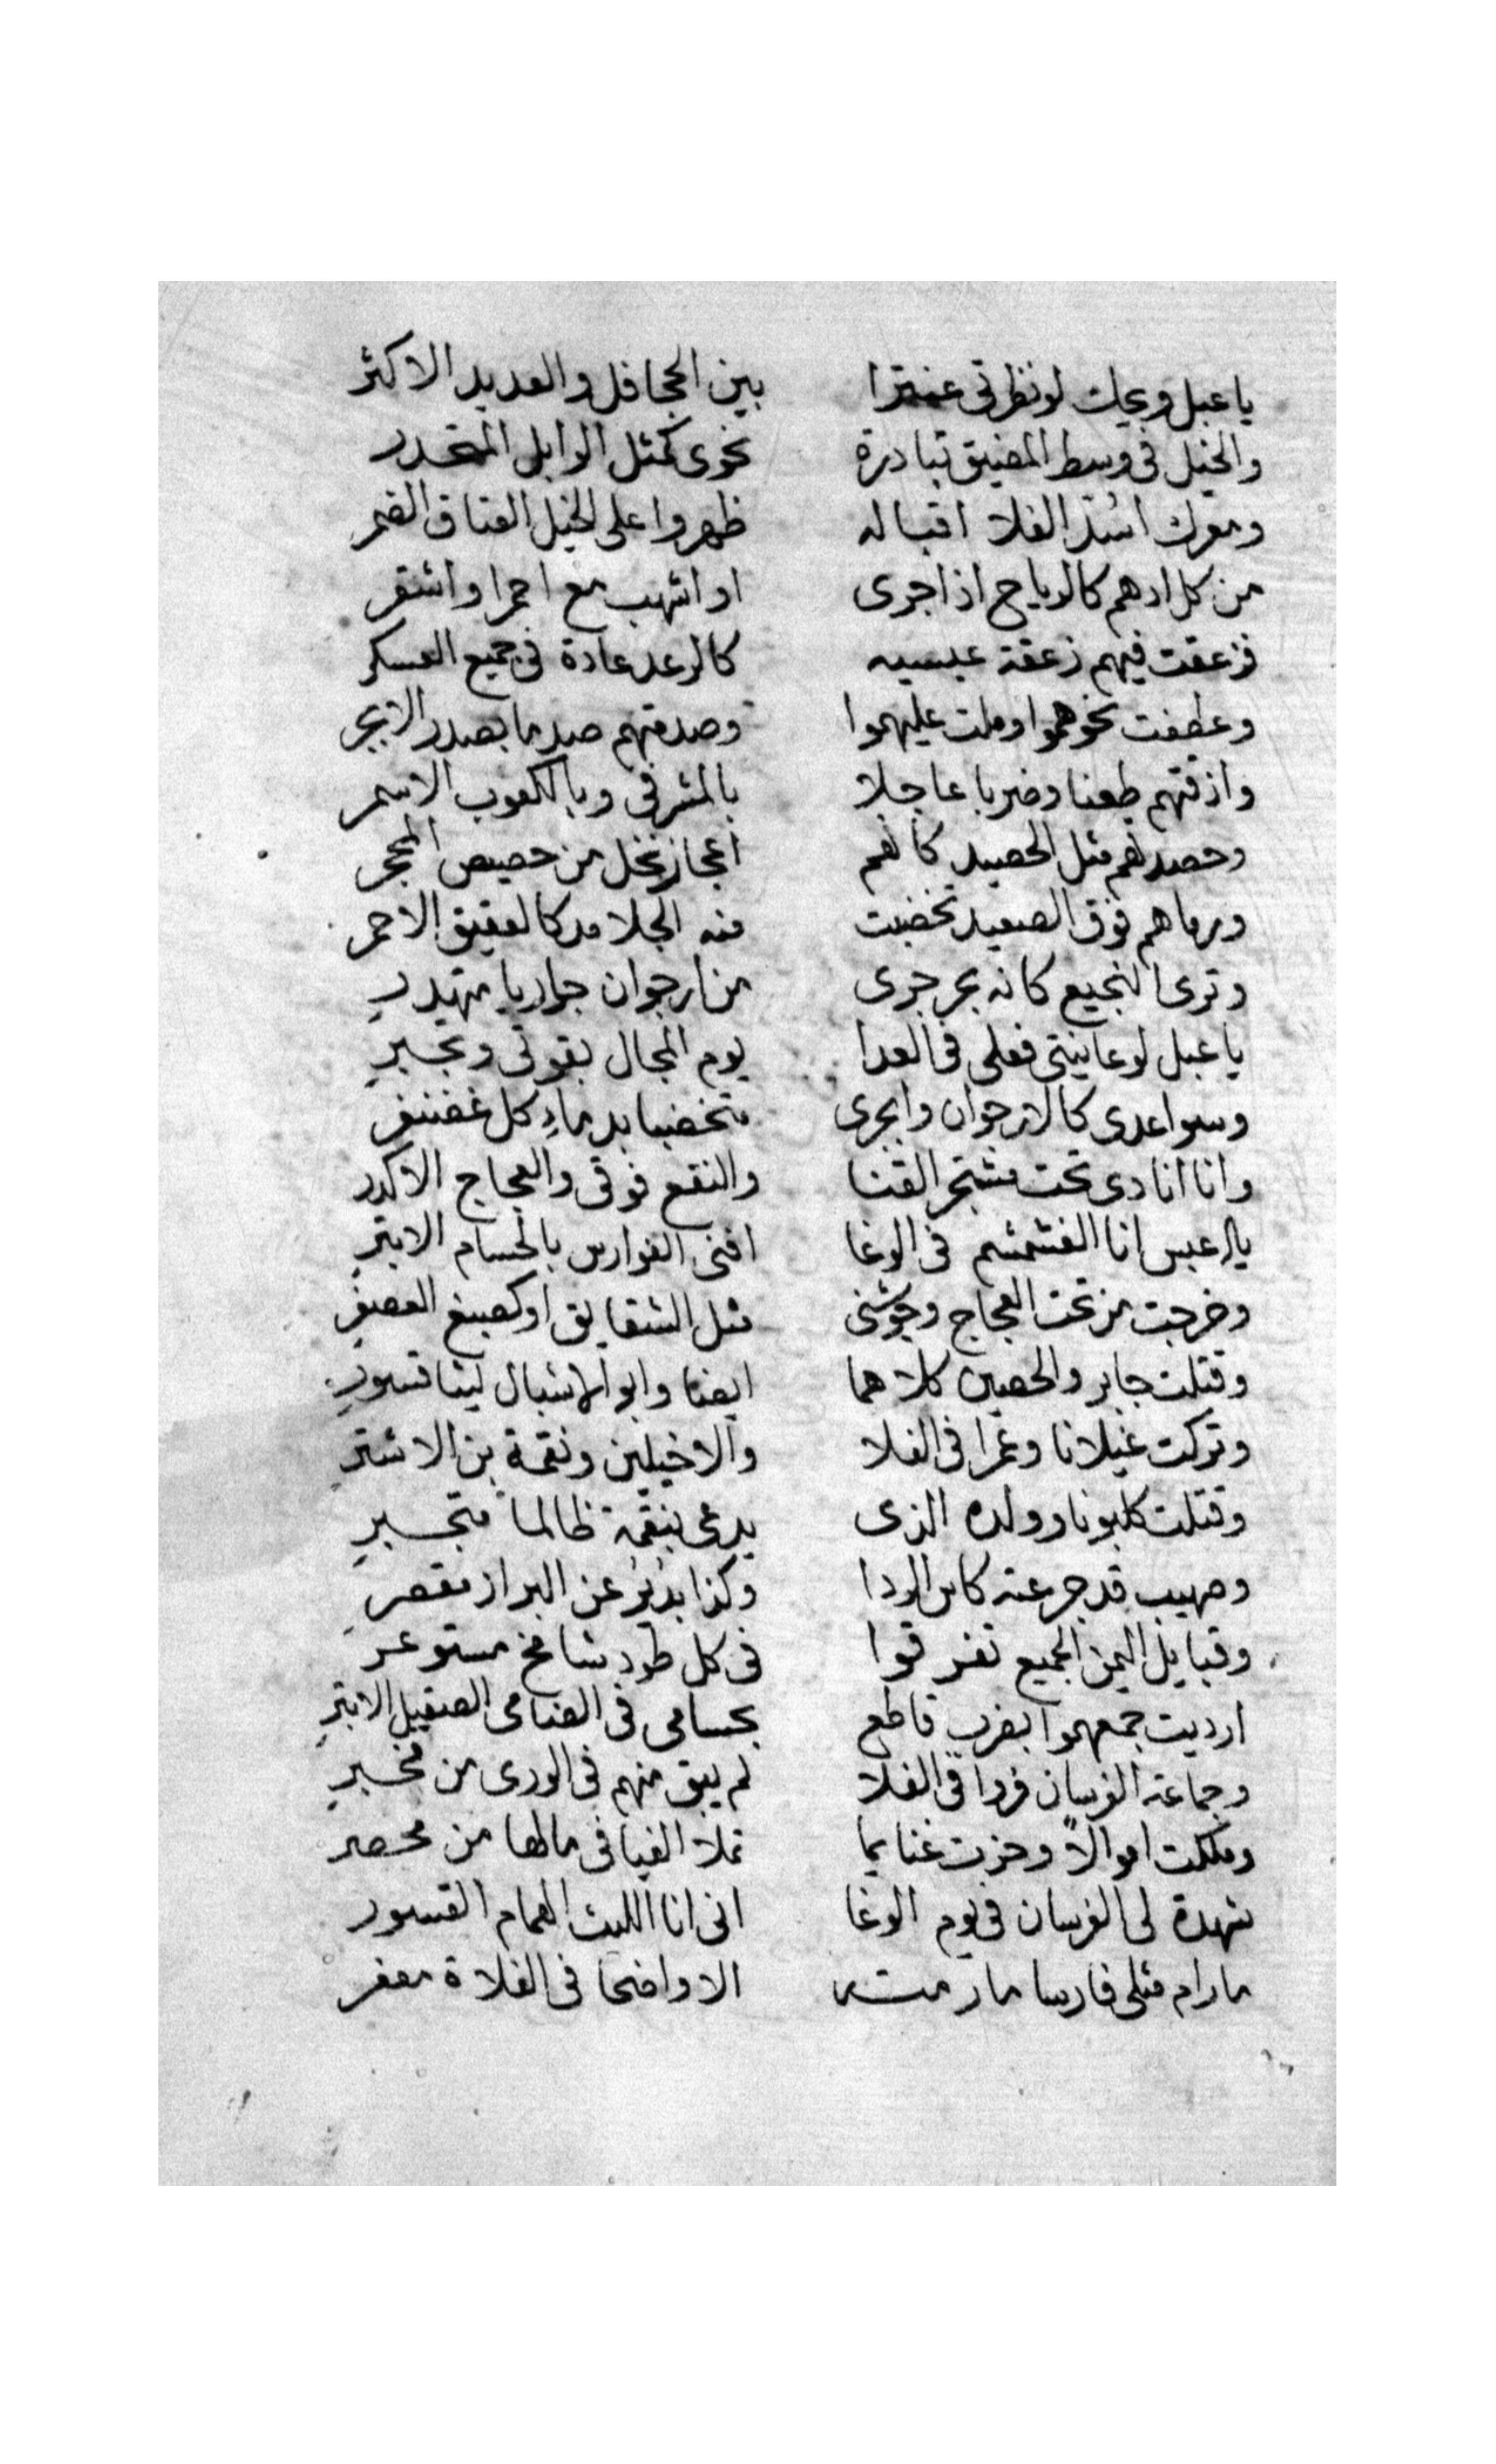 يا عبل ويحك لو نظرتى عنترا بين الجحافل والعديد الاكثر
والخيل فى وسط المضيق تبادرة نحوى كمثل الوابل المتحدر
اسُد الفلا اقباله ظهروا على الخيل العتاق الضمر
من كل ادهم كالرياح اذا جرى او اشهب مع احمرا واشقر
فزعقت فيهم زعقة عبسيه كالرعد عادة فى جميع العسكر
وعطفت نحوهموا وملت عليهموا وصدمتهم صدما بصدر الابجر
واذقتهم طعنا وضربا عاجلا بالمشرفى وبالكعوب الاسمر
وحصدتهم مثل الحصيد كانهم اعجاز نخل من حصيص المحجر
ودماهم فوق الصعيد تخضبت منه الجلامد كالعقيق الاحمر
وترى النجيع كانه بحر جرى من ارجوان جواريا متهدرِ
يا عبل لو عاينتى فعلى فى العدا يوم المجال بقوتى وتجبرِ
وسواعدى كالارجوان وابجرى متخضبا بدماءِ كل غضنفرِ
وانا انادى تحت مشتجر القنا والنقع فوقى والعجاج الاكدر
يال عبس انا الغشمشم فى الوغا افنى الفوارس بالحسام الابترِ
وخرجت من تحت العجاج وجوشنى مثل الشقايق او كصبغ العصفرِ
وقتلت جابر والحصين كلاهما ايضا وابو الاشبال ليثا قسورِ
وتركت غيلانا وغمرا فى الفلا والاخيلين ونقمة بن الاشترِ
وقتلت كلبونا وولده الذى يدعى بنقمة ظالما متجبرِ
وصهيب قد جرعته كاس الردا وكذا بديرُ عن البراز مقصرِ
وقبايل اليمن الجميع تفرقوا فى كل طود شامخ مستوعر
ارديت جمعهموا بضرب قاطع بحسامى فى الضامى الصقيل الابترِ
وجماعة الفرسان فردا فى الفلا لم يبق منهم فى الورى من مخبرِ
وملكت اموالاً وحزت غنايما تملا الفيافى مالها من محصر
شهدة لى الفرسان فى يوم الوغا انى انا الليث الهمام القسور
مارام مثلى فارسا مارمته الا واضحا فى الفلاة معفر